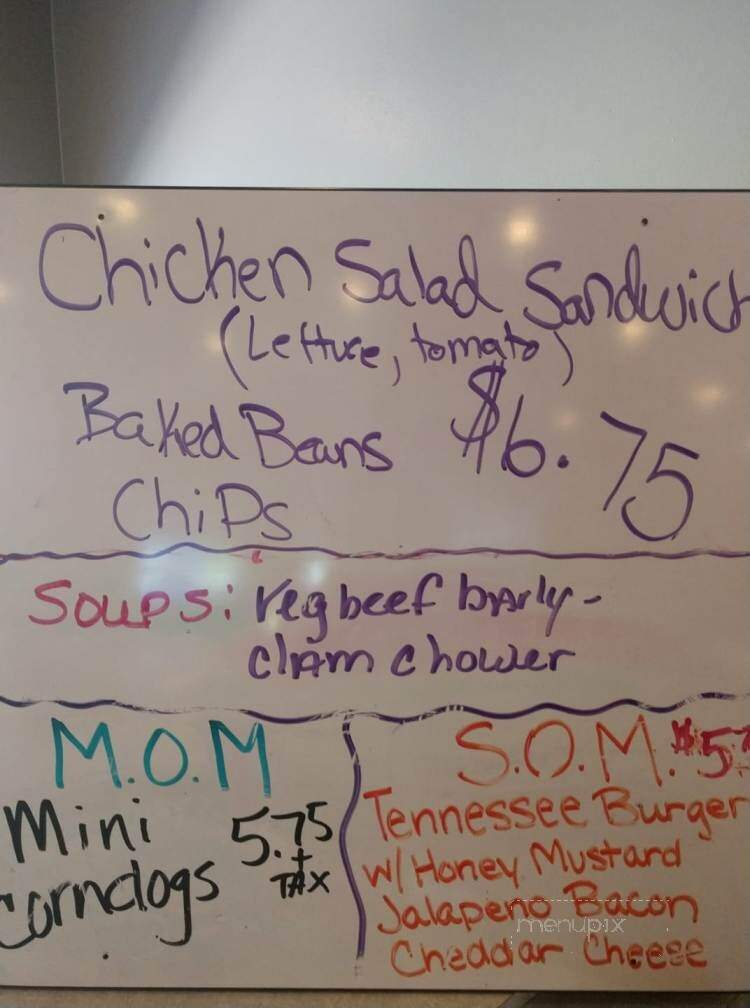 Chicken Salad Sandwich
(Lettuce, tomato)
Baked Beans $6.75
Chips
Soups: Veg beef barly-
clam chower
M.O.M
Mini 5.75
+
TAX
corndogs
S.O.M. $5.7
Tennessee Burger
w/ Honey Mustard
Jalapeno Bacon
Cheddar Cheese
menupix